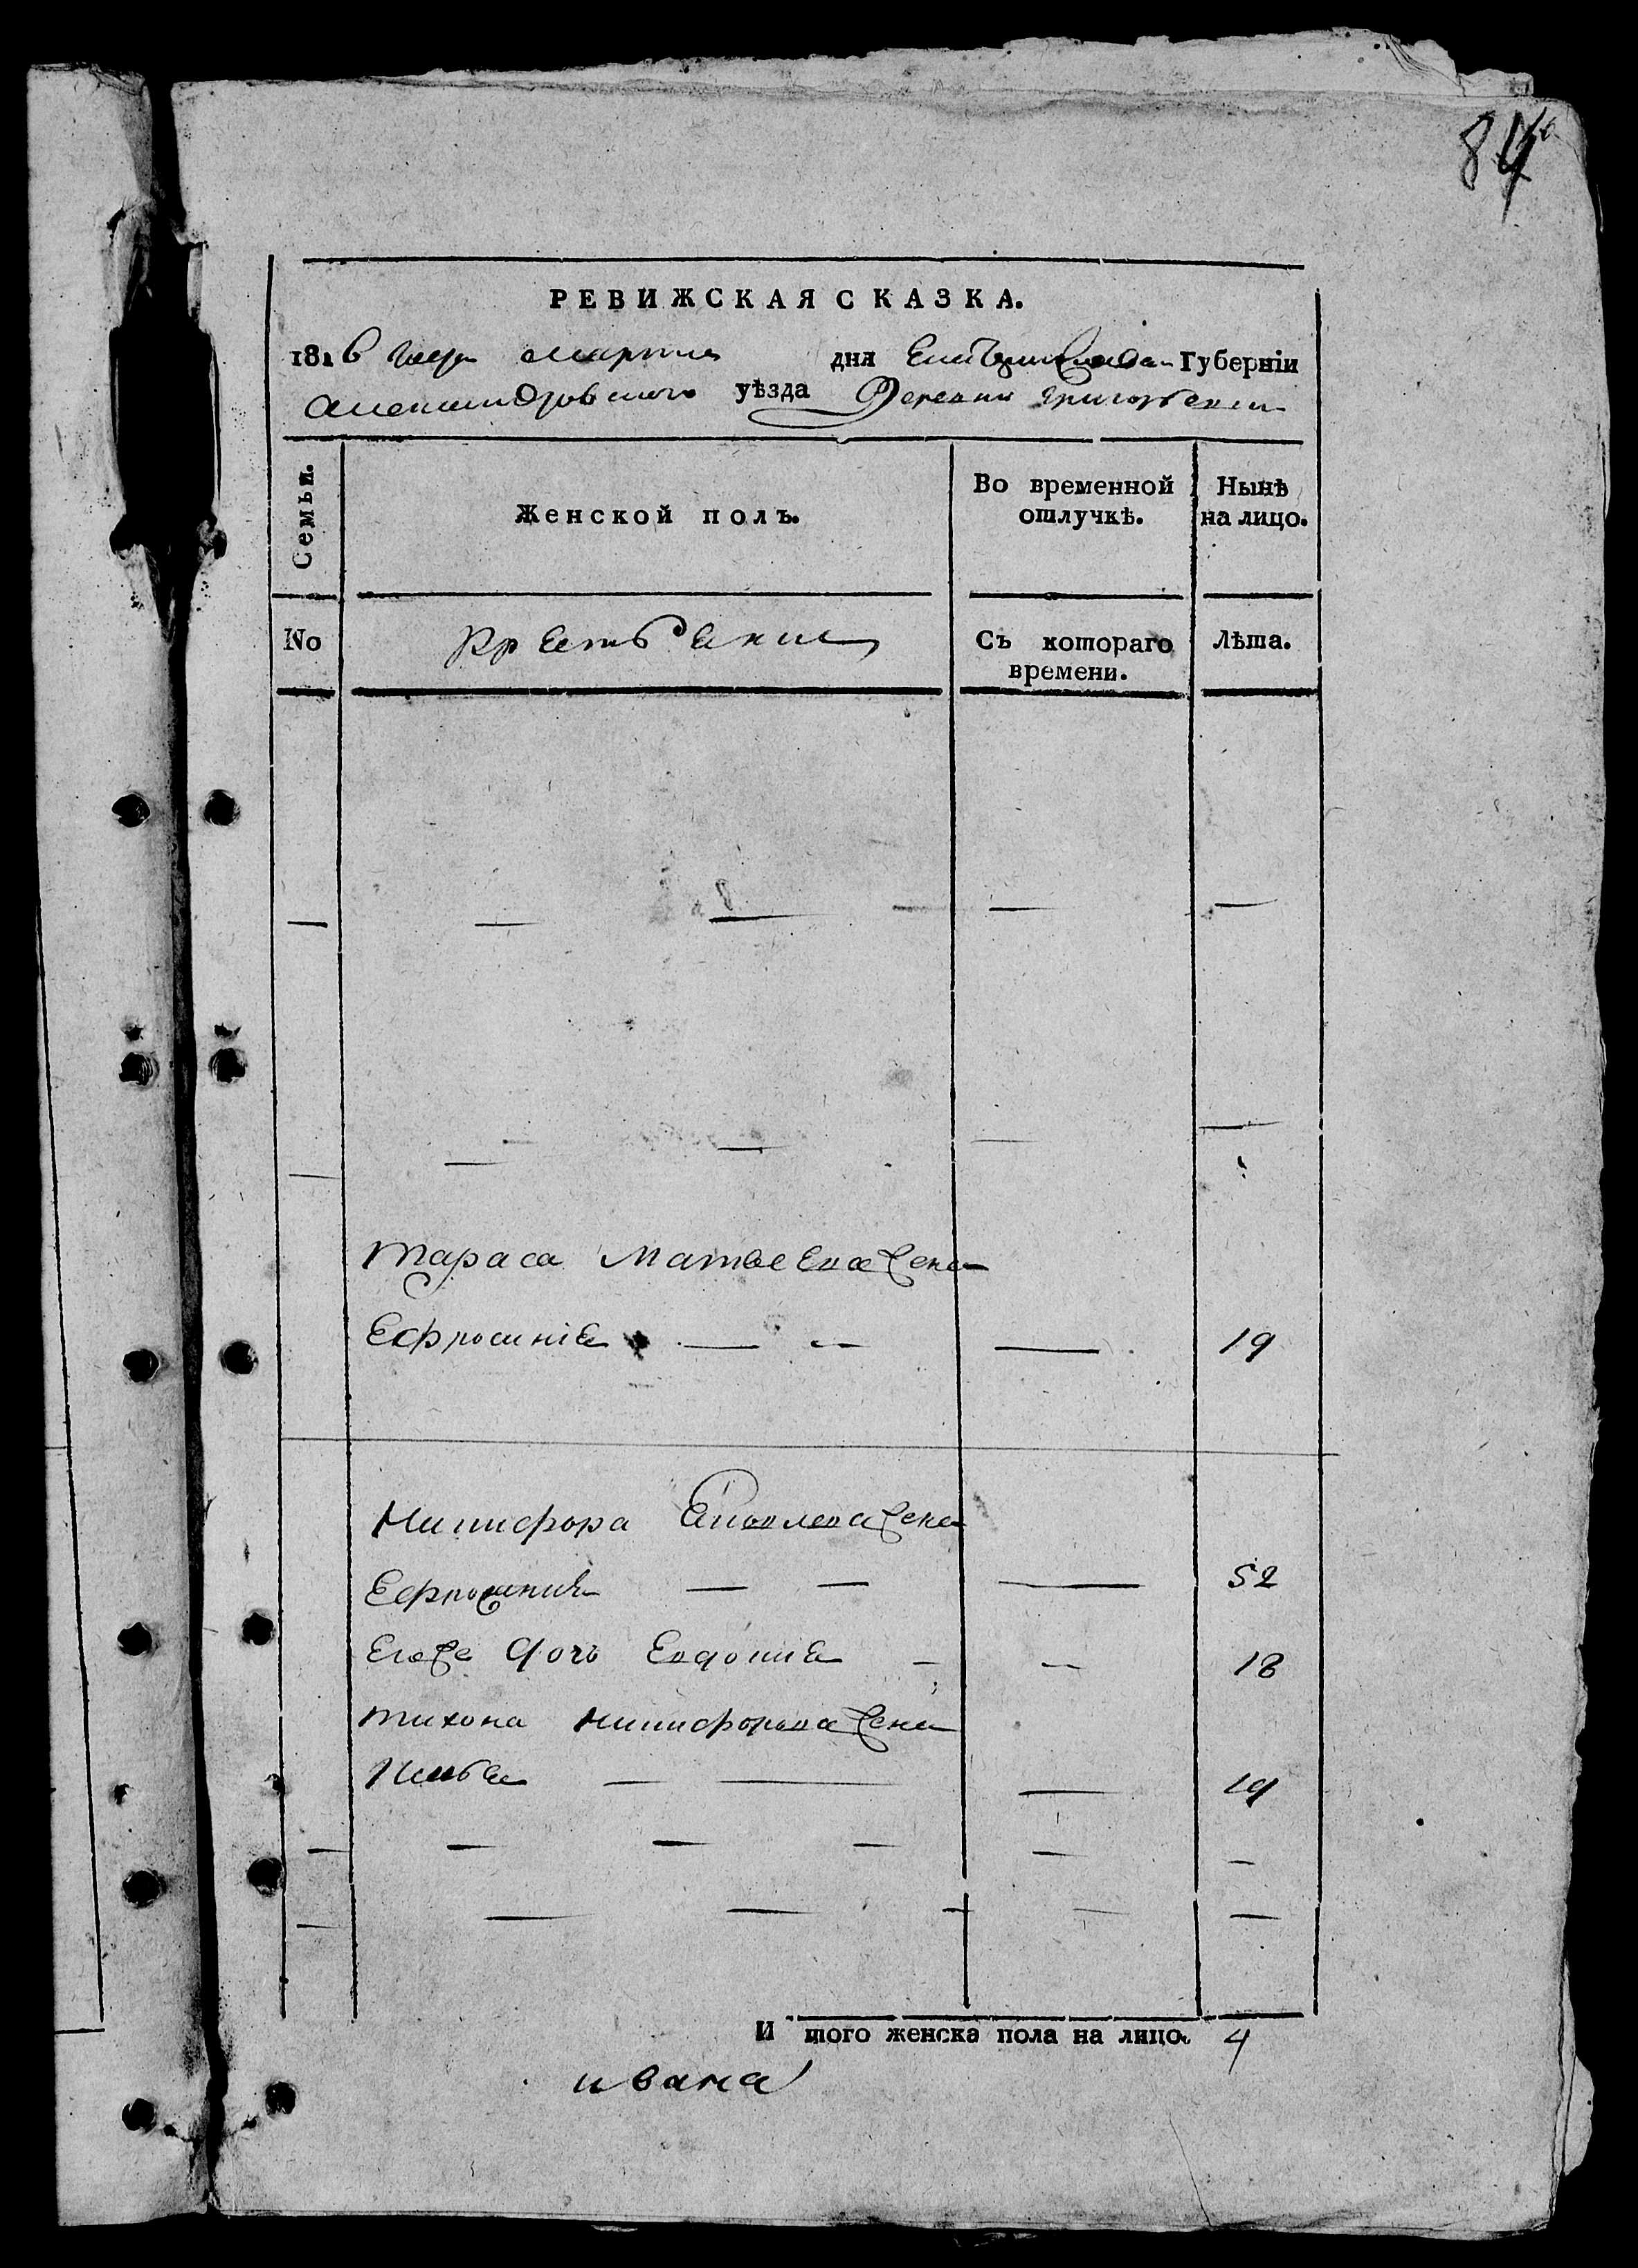 84
РЕВИЖСКАЯ СКАЗКА.
1816 года марта дня Екатеринослав Губерніи
Александровскаго уѣзда Деревни Григорьевки
Семьи.
Женской полъ.
Во временной отлучкѣ.
Нынѣ на лицо.
No
Крестьяни
Съ котораго времени.
Лѣта.
— — — — —
— — — — —
Тараса Матвеева жена
Ефросинiя — — — 19
Никифора жена
Ефросиния — — — 52
Егоже дочь Евдокия — — 18
Тихона Никифорова жена
— — — 19
— — — — — —
— — — — — —
И того женска пола на лицо. 4
ивана